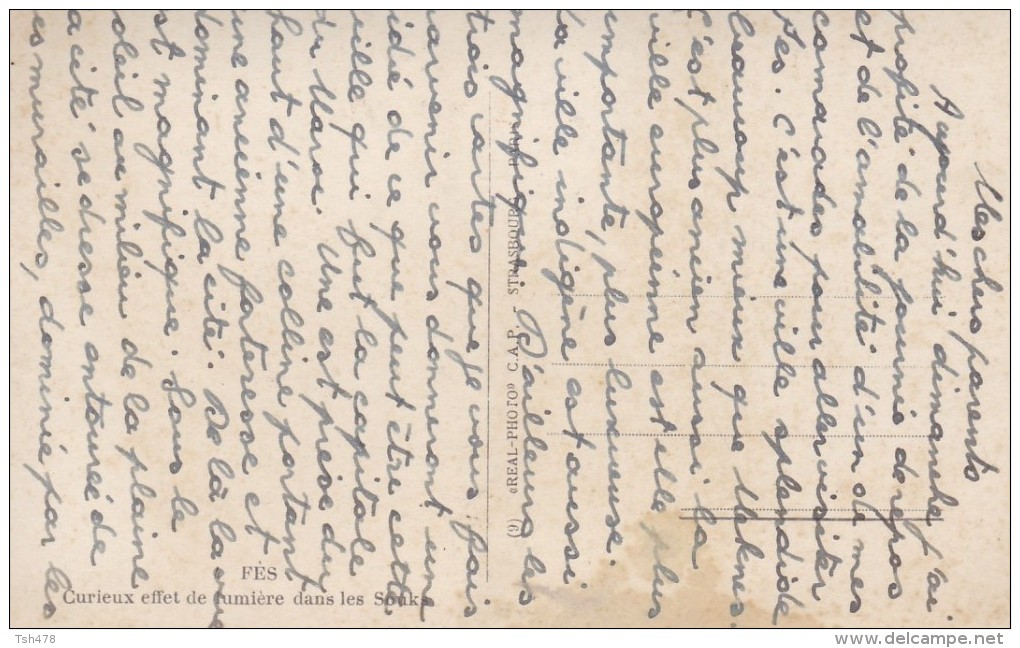 Mes chers parents
Aujourd'hui dimanche j'ai
profité de la journée de repos
et de l'amabilité d'un de mes
camarades pour aller visiter
Fes. C'est une ville splendide
beaucoup mieux que Meknes.
C'est plus ancien aussi la
ville européenne est elle plus
importante, plus luxueuse.
La ville indigène est aussi
magnifique. D'ailleurs les
trois cartes que je vous fais
parvenir vous donneront une
idée de ce que peut être cette
ville qui fut la capitale
du Maroc. Une est prise du
haut d'une colline portant
une ancienne forteresse et
dominant la cité. De là la vue
est magnifique. Sous le
soleil au milieu de la plaine
la cité se dresse entourée de
ses murailles, dominée par les
(9) «REAL-PHOTO» C.A.P. - STRASBOURG - PARIS
FÈS
Curieux effet de lumière dans les Souks
Tsh478
www.delcampe.net